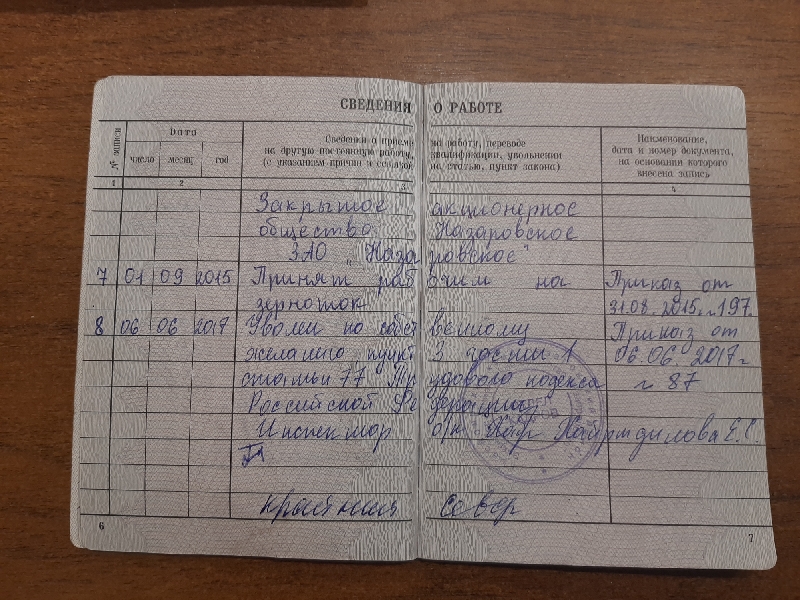 СВЕДЕНИЯ О РАБОТЕ
№ записи
Дата
число месяц год
Сведения о приеме на работу, переводе
на другую постоянную работу, квалификации, увольнении
(с указанием причин и ссылкой на статью, пункт закона)
Наименование,
дата и номер документа,
на основании которого
внесена запись
1 2 3 4
Закрытое акционерное
общество Назаровское
ЗАО "Назаровское"
7 01 09 2015 Принят рабочим на Приказ от
зерноток 31.08.2015г. 197
8 06 06 2017 Уволен по собственному Приказ от
желанию пункт 3 части 1 06.06.2017г
статьи 77 Трудового кодекса 87
Российской Федерации
Инспектор о/к Е.С.
6 7